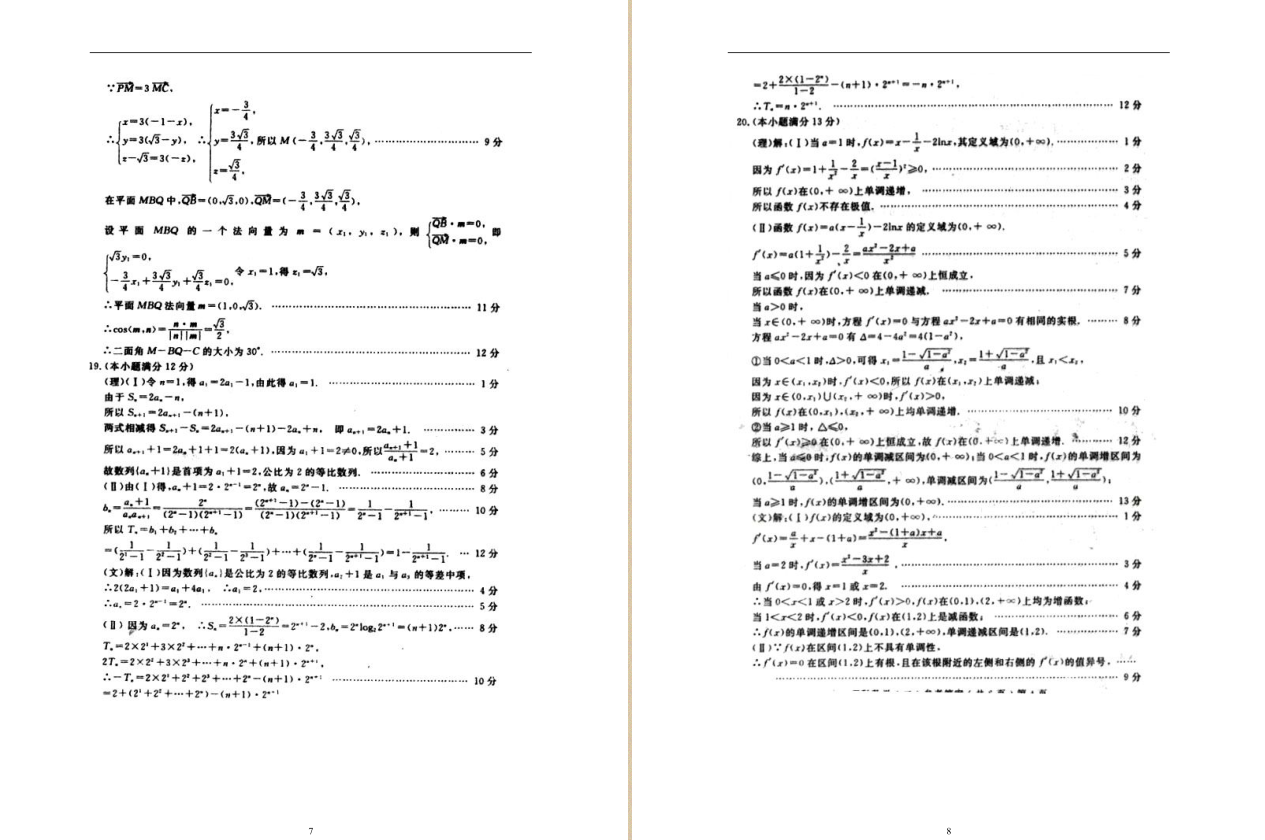 ∵PM=3MC,
∴{x=3(-1-x), y=3(√3-y), z-√3=3(-z), ∴{x=-3/4, y=3√3/4, z=√3/4, 所以 M(-3/4,3√3/4,√3/4),……9分
在平面 MBQ 中,QB=(0,√3,0),QM=(-3/4,3√3/4,√3/4),
设平面 MBQ 的一个法向量为 m=(x₁,y₁,z₁),则{QB·m=0, QM·m=0, 即
{√3y₁=0, -3/4x₁+3√3/4y₁+√3/4z₁=0, 令 x₁=1,得 z₁=√3,
∴平面 MBQ 法向量 m=(1,0,√3). ……11分
∴cos⟨m,n⟩=n·m/|n||m|=√3/2,
∴二面角 M-BQ-C 的大小为 30°. ……12分
19.(本小题满分 12 分)
(理)(Ⅰ)令 n=1,得 a₁=2a₁-1,由此得 a₁=1. ……1分
由于 Sₙ=2aₙ-n,
所以 Sₙ₊₁=2aₙ₊₁-(n+1),
两式相减得 Sₙ₊₁-Sₙ=2aₙ₊₁-(n+1)-2aₙ+n, 即 aₙ₊₁=2aₙ+1. ……3分
所以 aₙ₊₁+1=2aₙ+1+1=2(aₙ+1),因为 a₁+1=2≠0,所以(aₙ₊₁+1)/(aₙ+1)=2,……5分
故数列{aₙ+1}是首项为 a₁+1=2,公比为 2 的等比数列. ……6分
(Ⅱ)由(Ⅰ)得,aₙ+1=2·2ⁿ⁻¹=2ⁿ,故 aₙ=2ⁿ-1. ……8分
bₙ=(aₙ+1)/(aₙaₙ₊₁)=2ⁿ/((2ⁿ-1)(2ⁿ⁺¹-1))=((2ⁿ⁺¹-1)-(2ⁿ-1))/((2ⁿ-1)(2ⁿ⁺¹-1))=1/(2ⁿ-1)-1/(2ⁿ⁺¹-1),……10分
所以 Tₙ=b₁+b₂+…+bₙ
=(1/(2¹-1)-1/(2²-1))+(1/(2²-1)-1/(2³-1))+…+(1/(2ⁿ-1)-1/(2ⁿ⁺¹-1))=1-1/(2ⁿ⁺¹-1). …12分
(文)解:(Ⅰ)因为数列{aₙ}是公比为 2 的等比数列,a₂+1 是 a₁ 与 a₃ 的等差中项,
∴2(2a₁+1)=a₁+4a₁, ∴a₁=2,……4分
∴aₙ=2·2ⁿ⁻¹=2ⁿ. ……5分
(Ⅱ)因为 aₙ=2ⁿ, ∴Sₙ=2×(1-2ⁿ)/(1-2)=2ⁿ⁺¹-2,bₙ=2ⁿlog₂2ⁿ⁺¹=(n+1)2ⁿ,……8分
Tₙ=2×2¹+3×2²+…+n·2ⁿ⁻¹+(n+1)·2ⁿ,
2Tₙ=2×2²+3×2³+…+n·2ⁿ+(n+1)·2ⁿ⁺¹,
∴-Tₙ=2×2¹+2²+2³+…+2ⁿ-(n+1)·2ⁿ⁺¹ ……10分
=2+(2¹+2²+…+2ⁿ)-(n+1)·2ⁿ⁺¹
7
=2+2×(1-2ⁿ)/(1-2)-(n+1)·2ⁿ⁺¹=-n·2ⁿ⁺¹,
∴Tₙ=n·2ⁿ⁺¹. ……12分
20.(本小题满分 13 分)
(理)解:(Ⅰ)当 a=1 时,f(x)=x-1/x-2lnx,其定义域为(0,+∞),……1分
因为 f′(x)=1+1/x²-2/x=((x-1)/x)²≥0,……2分
所以 f(x)在(0,+∞)上单调递增, ……3分
所以函数 f(x)不存在极值. ……4分
(Ⅱ)函数 f(x)=a(x-1/x)-2lnx 的定义域为(0,+∞).
f′(x)=a(1+1/x²)-2/x=(ax²-2x+a)/x² ……5分
当 a≤0 时,因为 f′(x)<0 在(0,+∞)上恒成立,
所以函数 f(x)在(0,+∞)上单调递减. ……7分
当 a>0 时,
当 x∈(0,+∞)时,方程 f′(x)=0 与方程 ax²-2x+a=0 有相同的实根. ……8分
方程 ax²-2x+a=0 有 Δ=4-4a²=4(1-a²),
①当 0<a<1 时,Δ>0,可得 x₁=(1-√(1-a²))/a,x₂=(1+√(1-a²))/a,且 x₁<x₂,
因为 x∈(x₁,x₂)时,f′(x)<0,所以 f(x)在(x₁,x₂)上单调递减;
因为 x∈(0,x₁)∪(x₂,+∞)时,f′(x)>0,
所以 f(x)在(0,x₁),(x₂,+∞)上均单调递增. ……10分
②当 a≥1 时, △≤0,
所以 f′(x)≥0 在(0,+∞)上恒成立,故 f(x)在(0,+∞)上单调递增. ……12分
综上,当 a≤0 时,f(x)的单调减区间为(0,+∞);当 0<a<1 时,f(x)的单调增区间为
(0,(1-√(1-a²))/a),((1+√(1-a²))/a,+∞),单调减区间为((1-√(1-a²))/a,(1+√(1-a²))/a);
当 a≥1 时,f(x)的单调增区间为(0,+∞). ……13分
(文)解:(Ⅰ)f(x)的定义域为(0,+∞),……1分
f′(x)=a/x+x-(1+a)=(x²-(1+a)x+a)/x.
当 a=2 时,f′(x)=(x²-3x+2)/x, ……3分
由 f′(x)=0,得 x=1 或 x=2. ……4分
∴当 0<x<1 或 x>2 时,f′(x)>0,f(x)在(0,1),(2,+∞)上均为增函数;
当 1<x<2 时,f′(x)<0,f(x)在(1,2)上是减函数; ……6分
∴f(x)的单调递增区间是(0,1),(2,+∞),单调递减区间是(1,2). ……7分
(Ⅱ)∵f(x)在区间(1,2)上不具有单调性,
∴f′(x)=0 在区间(1,2)上有根,且在该根附近的左侧和右侧的 f′(x)的值异号, ……
……9分
8